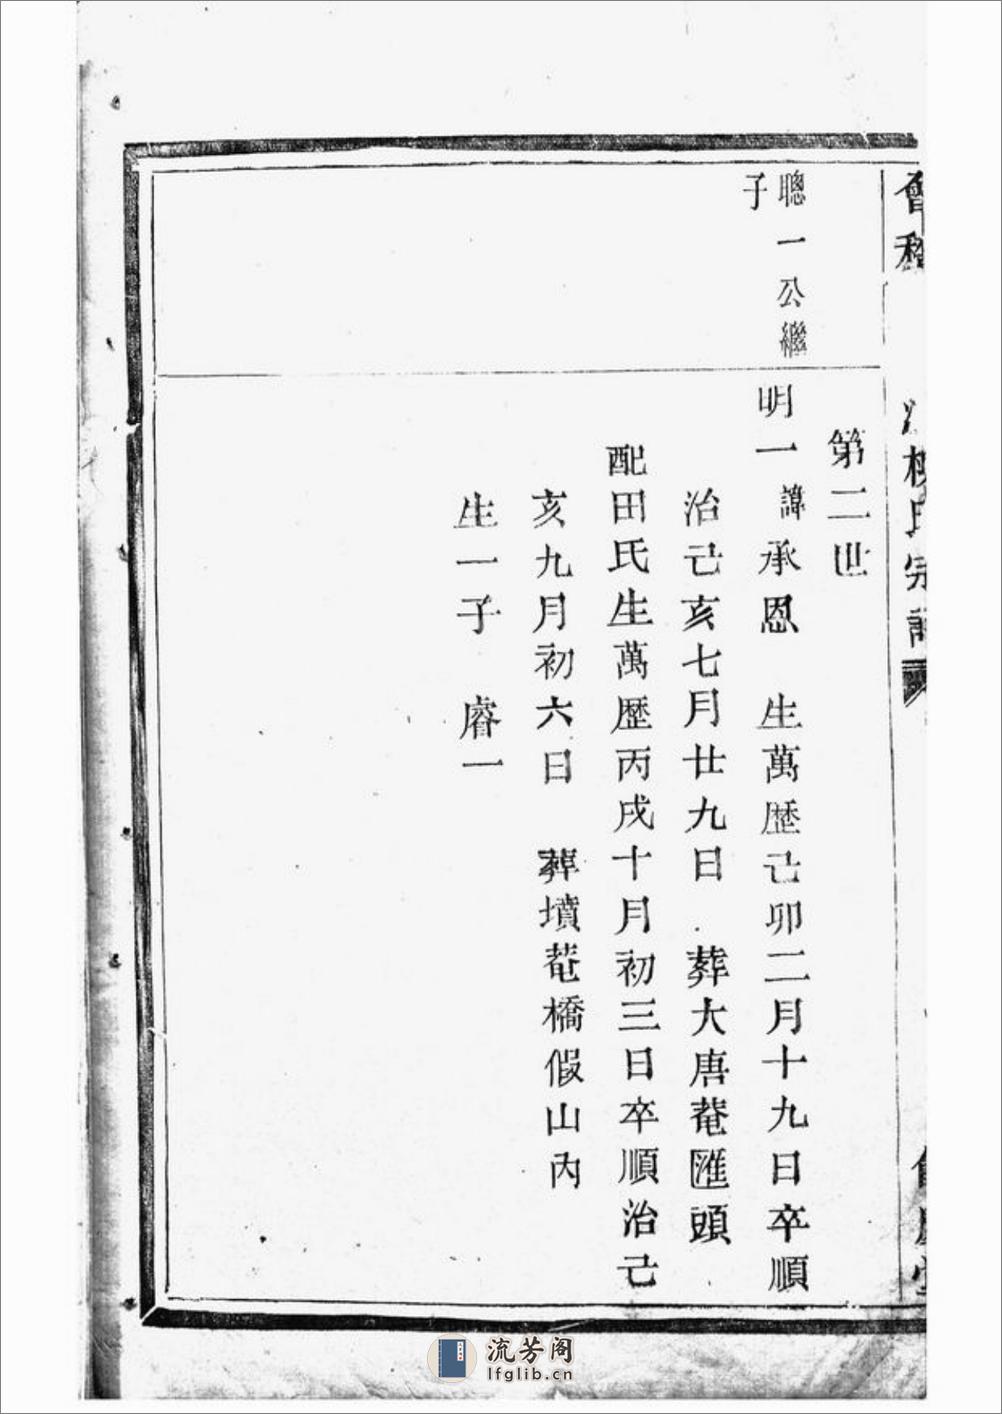 會稽
氏宗譜
堂
第二世
聰一公繼
子
明一諱承恩　生萬歷己卯二月十九日卒順
治己亥七月廿九日　葬大唐菴匯頭
配田氏生萬歷丙戌十月初三日卒順治己
亥九月初六日　葬墳菴橋假山內
生一子　睿一
流芳阁
lfglib.cn